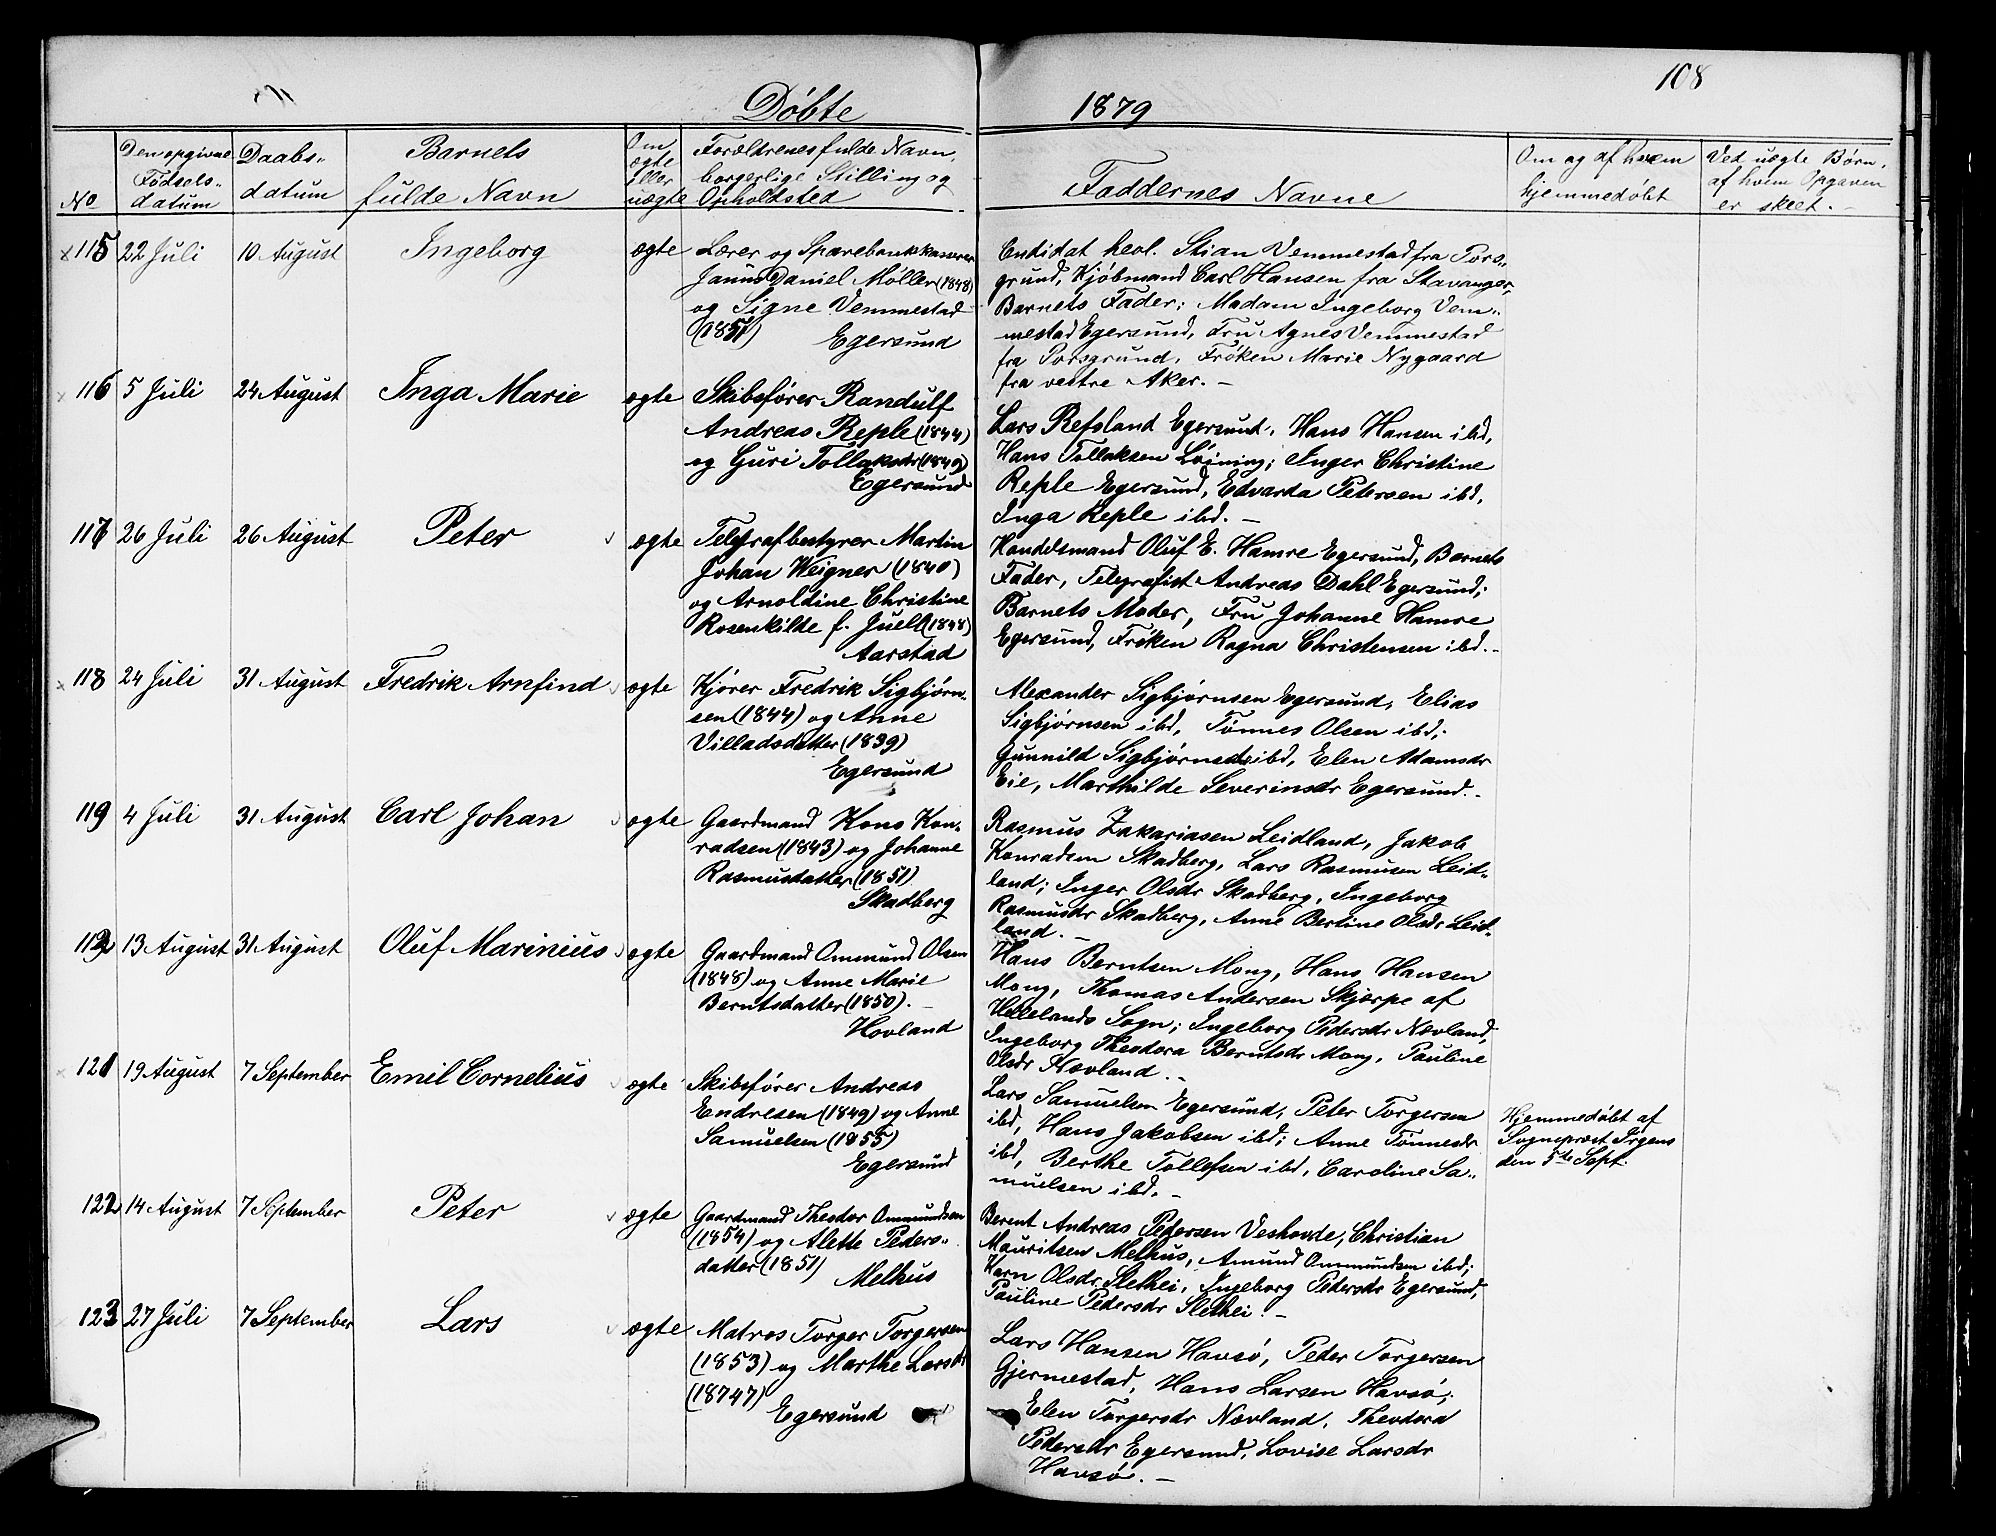 108
Døbte 1879
No
Den opgivne Fødsels-datum
Daabs-datum
Barnets fulde Navn
Om ægte eller uægte
Forældrenes fulde Navn, borgerlige Stilling og Opholdsted
Faddernes Navne
Om og af hvem hjemmedøbt
Ved uægte Børn, af hvem Opgaven er skeet. —
115 22 Juli 10 August Ingeborg ægte
Lærer og Sparebankkasserer
Daniel Møller (1848)
og Signe Vemmestad
(1851) Egersund
Stian Vemmestad fra Pors-
grund, Kjøbmand Carl Hansen fra Stavanger,
Barnets Fader; Madam Ingeborg Vem-
mestad Egersund, Fru Agnes Vemmestad
fra Porsgrund, Frøken Marie Nygaard
fra vestre Aker. —
116 5 Juli 24 August Inga Marie ægte
Skibsfører Randulf
Andreas Reple (1844)
og Guri Tollaksdr (1849)
Egersund
Lars Refsland Egersund, Hans Hansen ibd,
Hans Tollaksen Løining; Inger Christine
Reple Egersund, Edvarda Petersen ibd,
Inga Reple ibd. —
117 26 Juli 26 August Peter ægte
Telegrafbestyrer Martin
Johan Weigner (1840)
og Arnoldine Christine
Rosenkilde f. Juell (1848)
Aarstad
Handelsmand Oluf E. Hamre Egersund, Barnets
Fader, Telegrafist Andreas Dahl Egersund;
Barnets Moder, Fru Johanne Hamre
Egersund, Frøken Ragna Christensen ibd. -
118 24 Juli 31 August Fredrik Arnfind ægte
Kjører Fredrik Sigbjørn-
sen (1844) og Anne
Villadsdatter (1839)
Egersund
Alexander Sigbjørnsen Egersund, Elias
Sigbjørnsen ibd, Tønnes Olsen ibd;
Gunnild Sigbjørnsdr ibd, Elen Adamsdr
Eie, Marthilde Severinsdr Egersund. -
119 4 Juli 31 August Carl Johan ægte
Gaardmand Kons Kon-
radsen (1843) og Johanne
Rasmusdatter (1851)
Skadberg
Rasmus Zakariasen Leidland, Jakob
Konradsen Skadberg, Lars Rasmusen Leid-
land; Inger Olsdr Skadberg, Ingeborg
Rasmusdr Skadberg, Anne Bertine Olsdr Leid-
land. —
13 August 31 August Oluf Marinius ægte
Gaardmand Ommund Olsen
(1848) og Anne Marie
Berntsdatter (1850). —
Hovland
Hans Berntsen Mong, Hans Hansen
Mong, Thomas Andersen Skjerpe af
Hellelands Sogn; Ingeborg Pedersdr Nævland,
Ingeborg Theodora Berntsdr Mong, Pauline
Olsdr Hovland. —
121 19 August 7 September Emil Cornelius ægte
Skibsfører Andreas
Endresen (1849) og Anne
Samuelsen (1855)
Egersund
Lars Samuelsen Egersund, Peter Torgersen
ibd, Hans Jakobsen ibd; Anne Tønnesdr
ibd, Berthe Tollefsen ibd, Caroline Sa-
muelsen ibd. —
Hjemmedøbt af
Sogneprest Irgens
den 5te Sept.
122 14 August 7 September Peter ægte
Gaardmand Theodor Ommundsen
(1854) og Alette Peders-
datter (1851)
Melhus
Berent Andreas Pedersen Veshovde, Christian
Mauritsen Melhus, Amund Ommundsen ibd;
Karn Olsdr Slethei, Ingeborg Pedersdr Egersund,
Pauline Pedersdr Slethei. —
123 27 Juli 7 September Lars ægte
Matros Torger Torgersen
(1853) og Marthe Larsdr
(18747)
Egersund
Lars Hansen Havsø, Peder Torgersen
Gjermestad, Hans Larsen Havsø;
Elen Torgersdr Nævland, Theodora
Pedersdr Egersund, Lovise Larsdr
Havsø. —